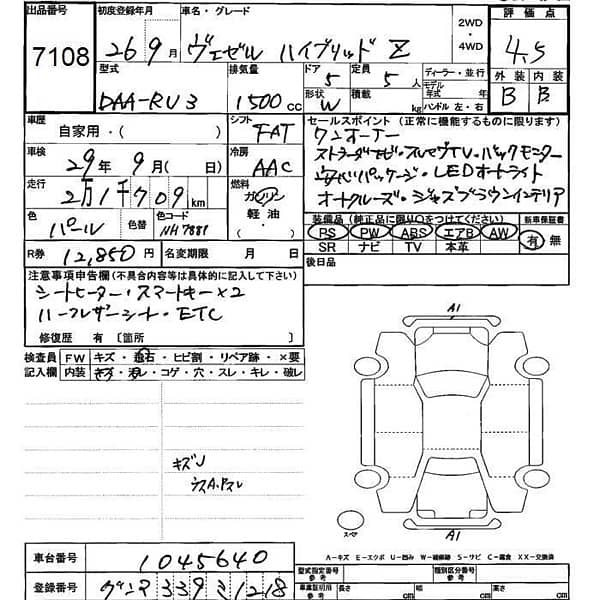 出品番号 初度登録年月 車名・グレード 2WD・4WD 評価点
7108 26 9月 ヴェゼル ハイブリッド Z 4.5
型式 排気量 ドア 定員 ディーラー・並行 外装 内装
DAA-RU3 1500cc 5 5人 モデル年式 年 B B
形状 W 積載 kg ハンドル 左・右
車歴 自家用・( ) シフト FAT
セールスポイント(正常に機能するものに限り)
ワンオーナー
車検 29年 9月( 日) 冷房 AAC
ストラーダナビ・フルセグTV・バックモニター
走行 2万1千709km 燃料 ガソリン 軽油
安心パッケージ・LEDオートライト
オートクルーズ・ジャズブラウンインテリア
色 パール 色替 色コード NH7881
装備品(純正品に限り○をつけてください) 新車保証書
PS PW ABS エアB AW 有 無
SR ナビ TV 本革
R券 12,850円 名変期限 月 日 後日品
注意事項申告欄(不具合内容等は具体的に記入して下さい)
シートヒーター・スマートキー×2
ハーフレザーシート・ETC
修復歴 有 [箇所 ]
検査員記入欄 FW キズ・飛石・ヒビ割・リペア跡・×要
内装 キズ・汚レ・コゲ・穴・スレ・キレ・破レ
A1
キズJ
スペア
A1
A-キズ E-エクボ U-凹み W-補修跡 S-サビ C-腐食 XX-交換済
車台番号 1045640
型式指定番号 参考 種別区分番号 参考
登録番号 グンマ 339 ミ 1218
車業証明用 参考 長さ cm 幅 cm 高さ cm